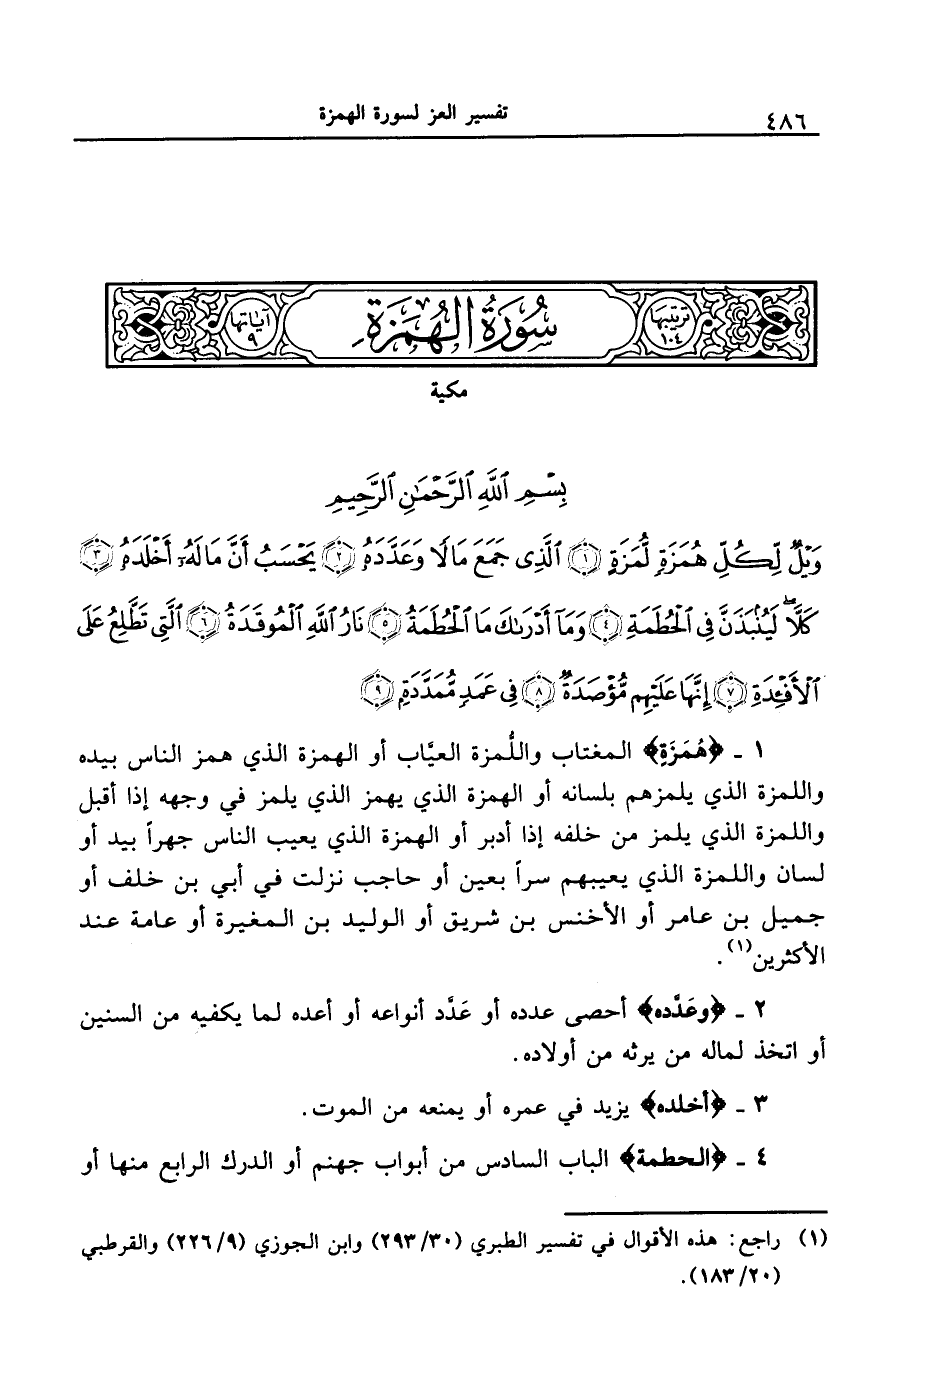 ٤٨٦
تفسير العز لسورة الهمزة
ترتيبها ١٠٤ سُورَةُ الهُمَزَةِ آياتها ٩
مكية
بِسْمِ اللَّهِ الرَّحْمَٰنِ الرَّحِيمِ
وَيْلٌ لِّكُلِّ هُمَزَةٍ لُّمَزَةٍ ١ الَّذِى جَمَعَ مَالًا وَعَدَّدَهُ ٢ يَحْسَبُ أَنَّ مَالَهُۥٓ أَخْلَدَهُ ٣
كَلَّا ۖ لَيُنۢبَذَنَّ فِى الْحُطَمَةِ ٤ وَمَآ أَدْرَىٰكَ مَا الْحُطَمَةُ ٥ نَارُ اللَّهِ الْمُوقَدَةُ ٦ الَّتِى تَطَّلِعُ عَلَى
الْأَفْـِٔدَةِ ٧ إِنَّهَا عَلَيْهِم مُّؤْصَدَةٌ ٨ فِى عَمَدٍ مُّمَدَّدَةٍۭ ٩
١ ـ ﴿هُمَزَةٍ﴾ المغتاب واللُّمزة العيَّاب أو الهمزة الذي همز الناس بيده
واللمزة الذي يلمزهم بلسانه أو الهمزة الذي يهمز الذي يلمز في وجهه إذا أقبل
واللمزة الذي يلمز من خلفه إذا أدبر أو الهمزة الذي يعيب الناس جهراً بيد أو
لسان واللمزة الذي يعيبهم سراً بعين أو حاجب نزلت في أبي بن خلف أو
جميل بن عامر أو الأخنس بن شريق أو الوليد بن المغيرة أو عامة عند
الأكثرين(١).
٢ ـ ﴿وعَدَّده﴾ أحصى عدده أو عَدَّد أنواعه أو أعده لما يكفيه من السنين
أو اتخذ لماله من يرثه من أولاده.
٣ ـ ﴿أخلده﴾ يزيد في عمره أو يمنعه من الموت.
٤ ـ ﴿الحطمة﴾ الباب السادس من أبواب جهنم أو الدرك الرابع منها أو
(١) راجع: هذه الأقوال في تفسير الطبري (٢٩٣/٣٠) وابن الجوزي (٢٢٦/٩) والقرطبي
(١٨٣/٢٠).